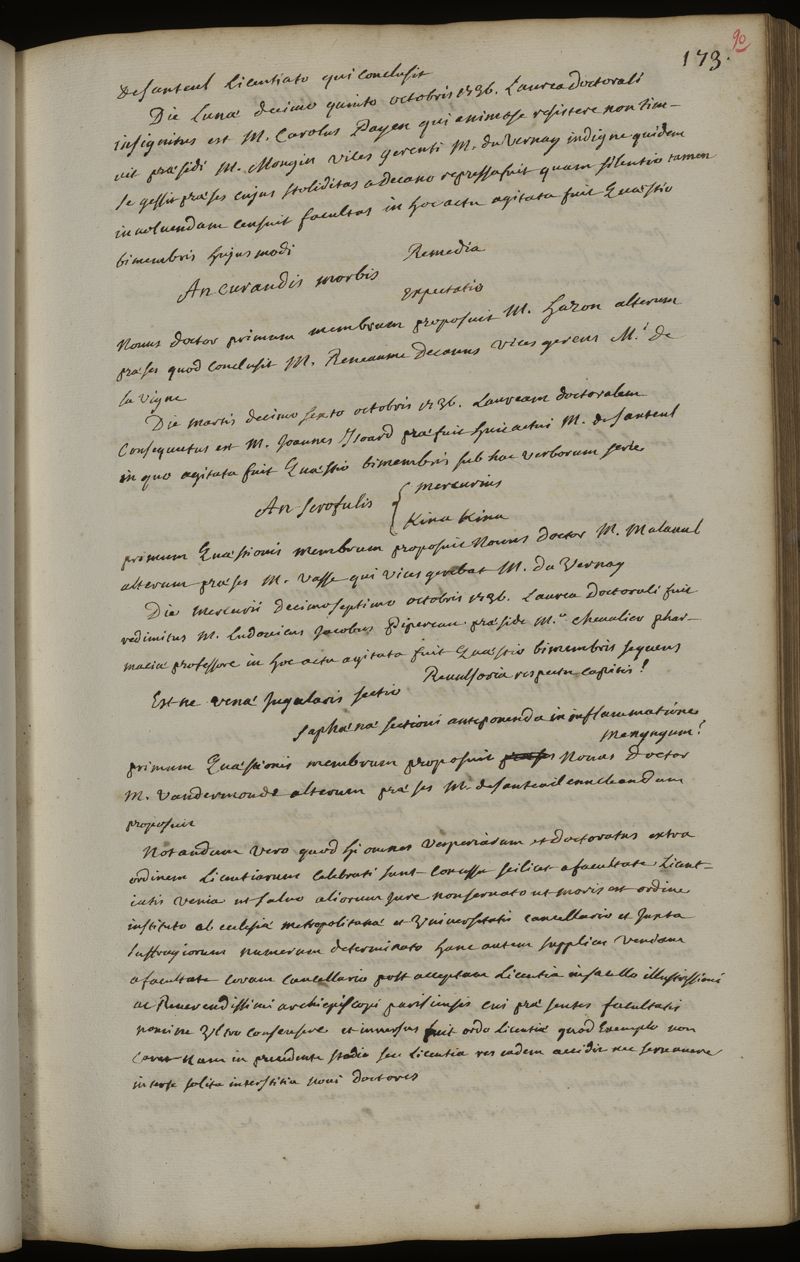 90
173.
De Santeul Licentiato qui conclusit
Die Lunae decimo quinto octobris 1736. Laurea doctorali
insignitus est M. Carolus Payen qui animose resistere non tim-
uit praesidi M. Mongin vices gerenti M. du Vernay indigne quidem
se gessit praeses cujus stoliditas a decano repressa fuit quam silentio tamen
involuendam censuit facultas in hoc actu agitata fuit Quaestio
bimembris hujusmodi
Remedia
An curandis morbis
Expectatio
Nouus doctor primum membrum proposuit M. Hazon alterum
praeses quod conclusit M. Reneaume Decanus vices gerens M.i de
la vigne
Die martis decimo sexto octobris 1736. Lauream doctoralem
Consequutus est M. Joannes Isoard praefuit huic actui M. de Santeul
in quo agitata fuit Quaestio bimembris sub hac verborum serie
An scrofulis { Mercurius
Kina Kina
primum Quaestionis membrum proposuit Nouus doctor M. Malaual
alterum praeses M. Vasse qui vices gerebat M. Du Vernay
Die Mercurii decimo septimo octobris 1736. Laurea Doctorali fuit
redimitus M. Ludovicus Jacobus Pipereau praeside M.o cheualier phar-
maciae professore in hoc actu agitata fuit Quaestio bimembris sequens
Est ne venae Jugularis sectio Reuulsoria respectu capitis?
saphaenae sectioni anteponenda in inflammatione
menyngum?
primum Quaestionis membrum proposuit praeses Nouus Doctor
M. Vandermonde alterum praeses M. de Santeul enucleandum
proposuit
Notandum vero quod hi omnes vesperiarum et doctoratus extra
ordinem Licentiarum celebrati sunt concessa scilicet a facultate Licent-
iatis venia ut saluo aliorum jure non seruato ut moris est ordine
instituto ab ecclesiae metropolitanae et Vniuersitatis cancellario et juxta
suffragiorum numerum determinato hanc autem supplices veniam
a facultate coram cancellario post acceptam Licentiam in sacello illustrissimi
ac Reuerendissimi archiepiscopi parisiensis cui praesentes facultatis
nomine Vltro consensere et inuersus fuit ordo Licentiae quod Exemplo non
caret nam in precedente stadio seu Licentia res eadem accidit nec seruauere
inter se solita interstitia noui doctores